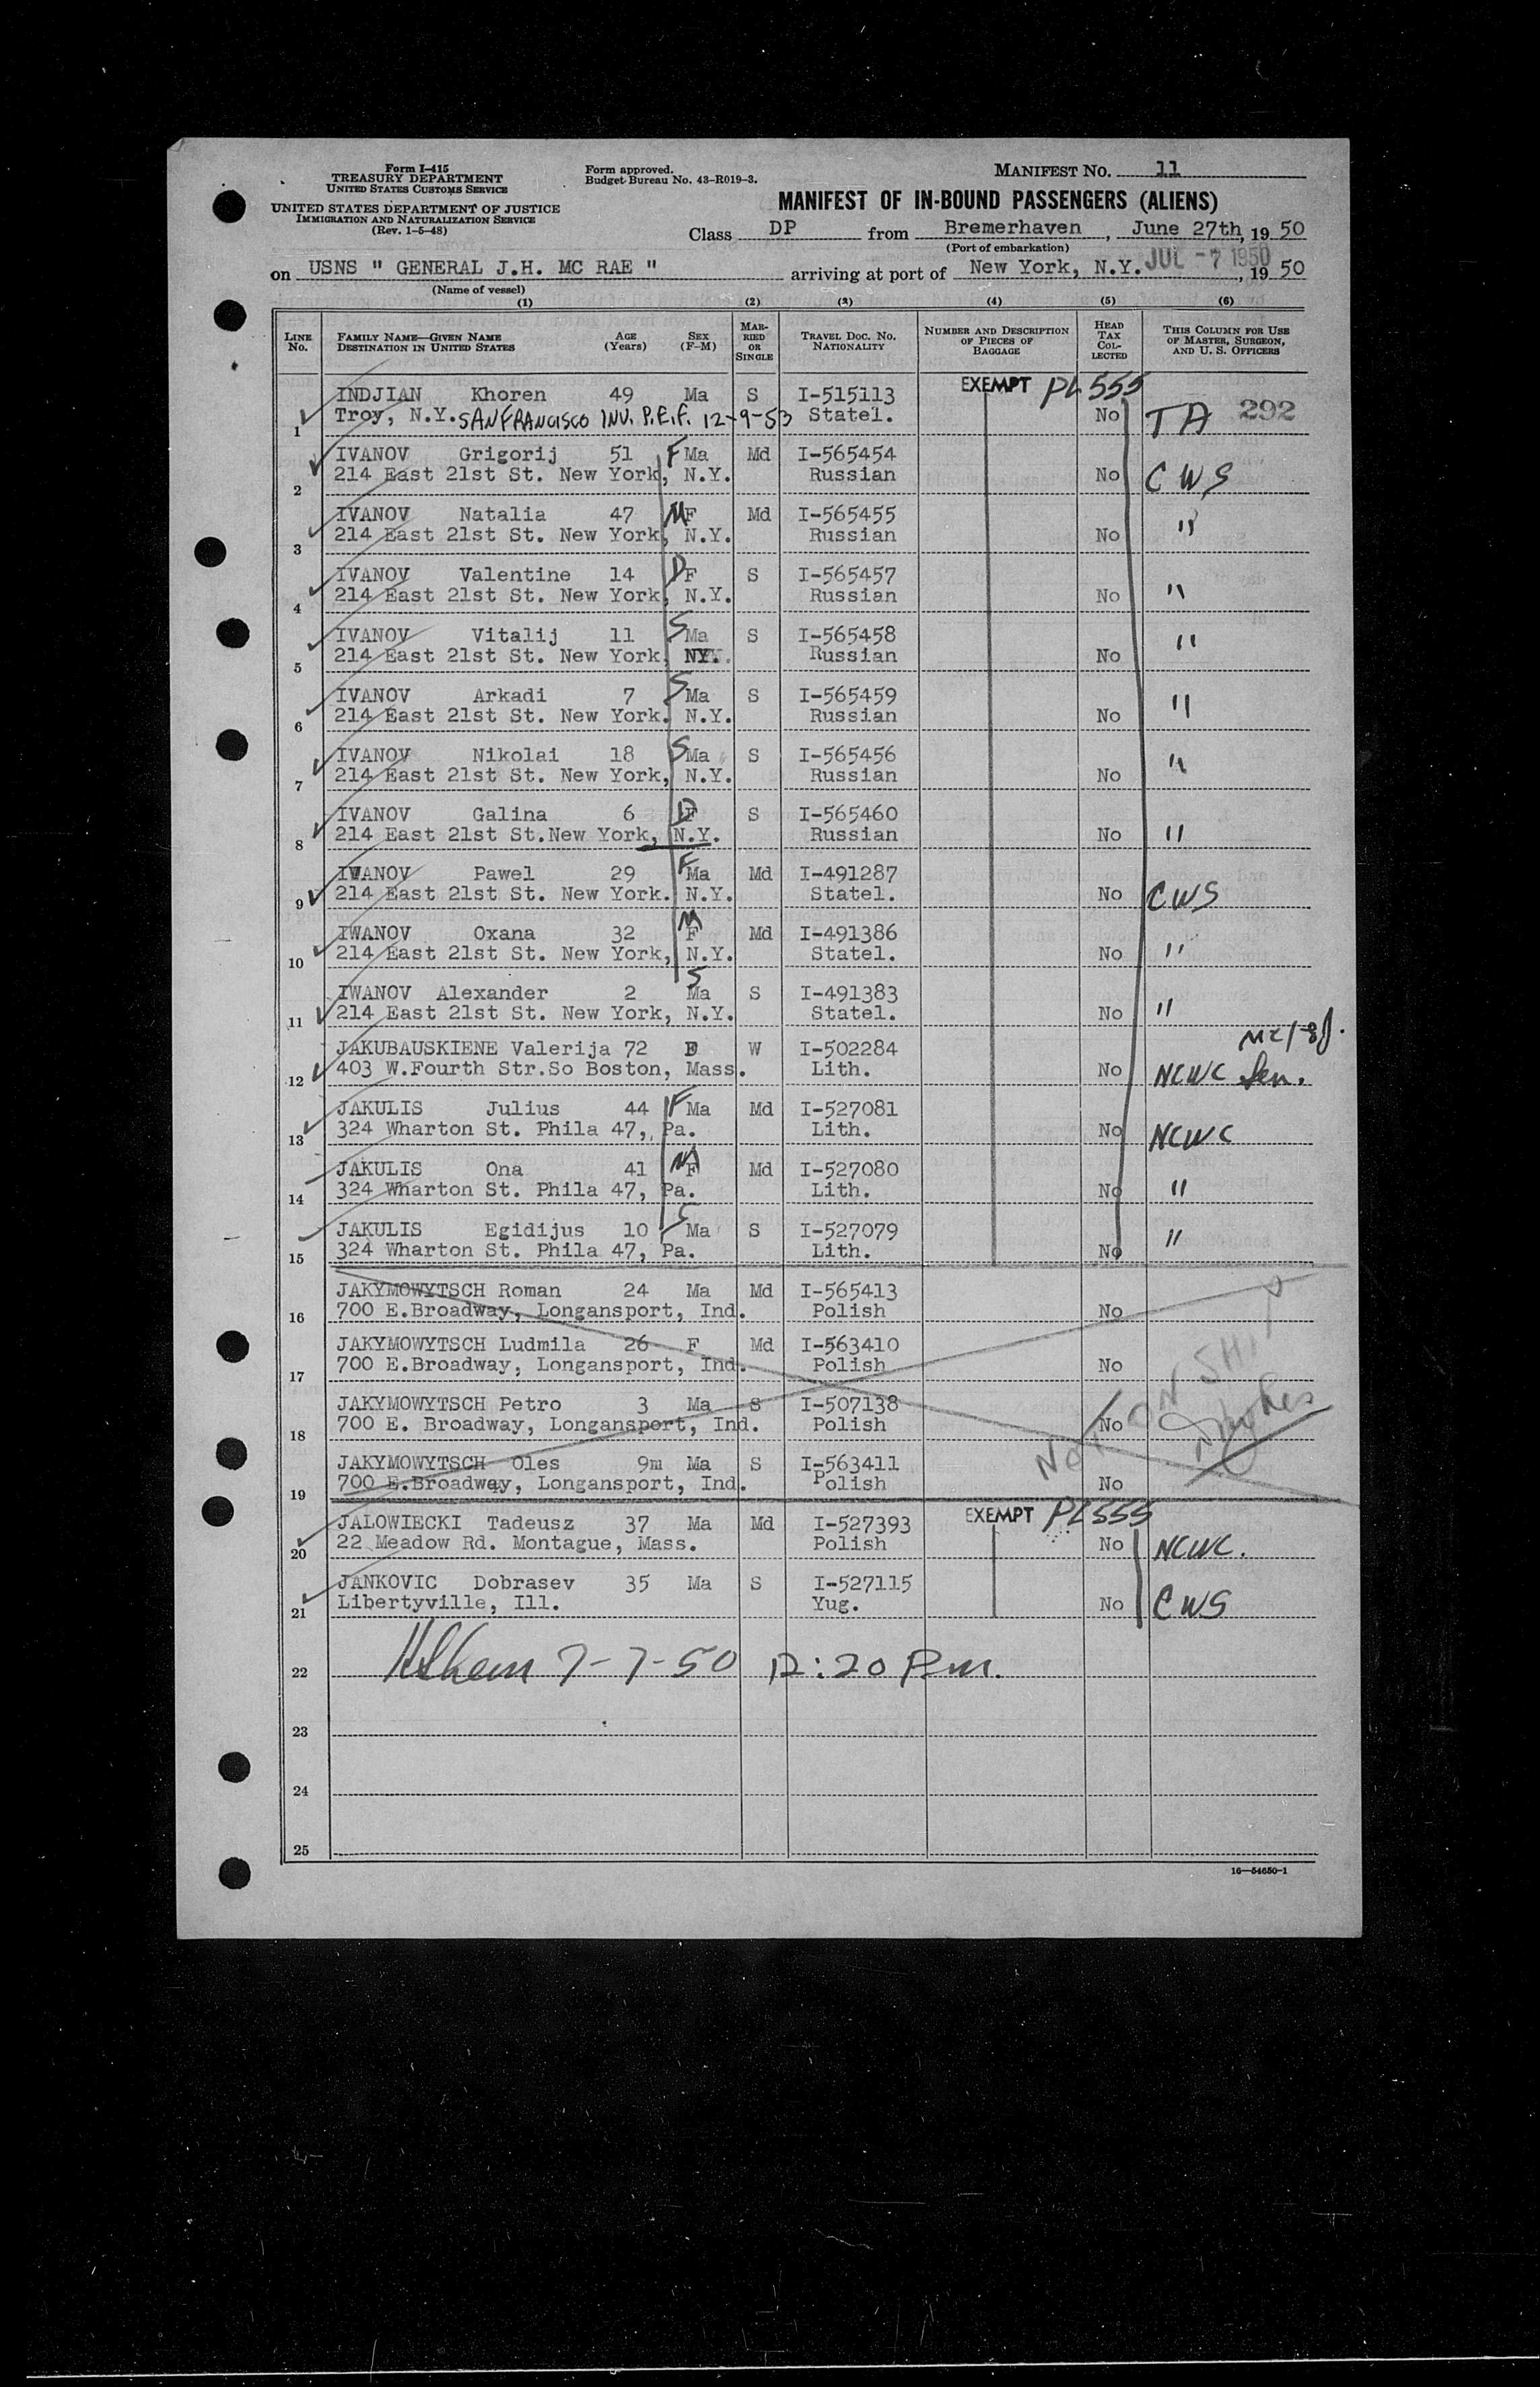 Form I-415
TREASURY DEPARTMENT
UNITED STATES CUSTOMS SERVICE
UNITED STATES DEPARTMENT OF JUSTICE
IMMIGRATION AND NATURALIZATION SERVICE
(Rev. 1-5-48)
Form approved.
Budget Bureau No. 43-R019-3.
MANIFEST NO. 11
MANIFEST OF IN-BOUND PASSENGERS (ALIENS)
Class DP from Bremerhaven, June 27th, 1950
(Port of embarkation)
on USNS " GENERAL J.H. MC RAE " arriving at port of New York, N.Y. JUL -7 1950, 1950
(Name of vessel)
(1) (2) (3) (4) (5) (6)
LINE NO. FAMILY NAME—GIVEN NAME DESTINATION IN UNITED STATES AGE (Years) SEX (F-M) MARRIED OR SINGLE TRAVEL DOC. NO. NATIONALITY NUMBER AND DESCRIPTION OF PIECES OF BAGGAGE HEAD TAX COLLECTED THIS COLUMN FOR USE OF MASTER, SURGEON, AND U. S. OFFICERS
EXEMPT PL 555
INDJIAN Khoren 49 Ma S I-515113
1 Troy, N.Y. SAN FRANCISCO INV. P.E.F. 12-9-53 Statel. No TA 292
IVANOV Grigorij 51 F Ma Md I-565454
2 214 East 21st St. New York, N.Y. Russian No CWS
IVANOV Natalia 47 M F Md I-565455
3 214 East 21st St. New York, N.Y. Russian No "
IVANOV Valentine 14 D F S I-565457
4 214 East 21st St. New York, N.Y. Russian No "
IVANOV Vitalij 11 S Ma S I-565458
5 214 East 21st St. New York, NY. Russian No "
IVANOV Arkadi 7 S Ma S I-565459
6 214 East 21st St. New York. N.Y. Russian No "
IVANOV Nikolai 18 S Ma S I-565456
7 214 East 21st St. New York, N.Y. Russian No "
IVANOV Galina 6 D F S I-565460
8 214 East 21st St.New York, N.Y. Russian No "
IWANOV Pawel 29 F Ma Md I-491287
9 214 East 21st St. New York. N.Y. Statel. No CWS
IWANOV Oxana 32 M F Md I-491386
10 214 East 21st St. New York, N.Y. Statel. No "
IWANOV Alexander 2 S Ma S I-491383
11 214 East 21st St. New York, N.Y. Statel. No "
JAKUBAUSKIENE Valerija 72 F W I-502284
12 403 W.Fourth Str.So Boston, Mass. Lith. No NCWC Sen.
JAKULIS Julius 44 F Ma Md I-527081
13 324 Wharton St. Phila 47, Pa. Lith. No NCWC
JAKULIS Ona 41 M F Md I-527080
14 324 Wharton St. Phila 47, Pa. Lith. No "
JAKULIS Egidijus 10 S Ma S I-527079
15 324 Wharton St. Phila 47, Pa. Lith. No "
JAKYMOWYTSCH Roman 24 Ma Md I-565413
16 700 E.Broadway, Longansport, Ind. Polish No
JAKYMOWYTSCH Ludmila 26 F Md I-563410
17 700 E.Broadway, Longansport, Ind. Polish No
JAKYMOWYTSCH Petro 3 Ma S I-507138
18 700 E. Broadway, Longansport, Ind. Polish No
NOT ON SHIP
JAKYMOWYTSCH Oles 9m Ma S I-563411
19 700 E.Broadway, Longansport, Ind. Polish No
EXEMPT PL 555
JALOWIECKI Tadeusz 37 Ma Md I-527393
20 22 Meadow Rd. Montague, Mass. Polish No NCWC.
JANKOVIC Dobrasev 35 Ma S I-527115
21 Libertyville, Ill. Yug. No CWS
22 7-7-50 12:20 P.m.
23
24
25
16—54650-1